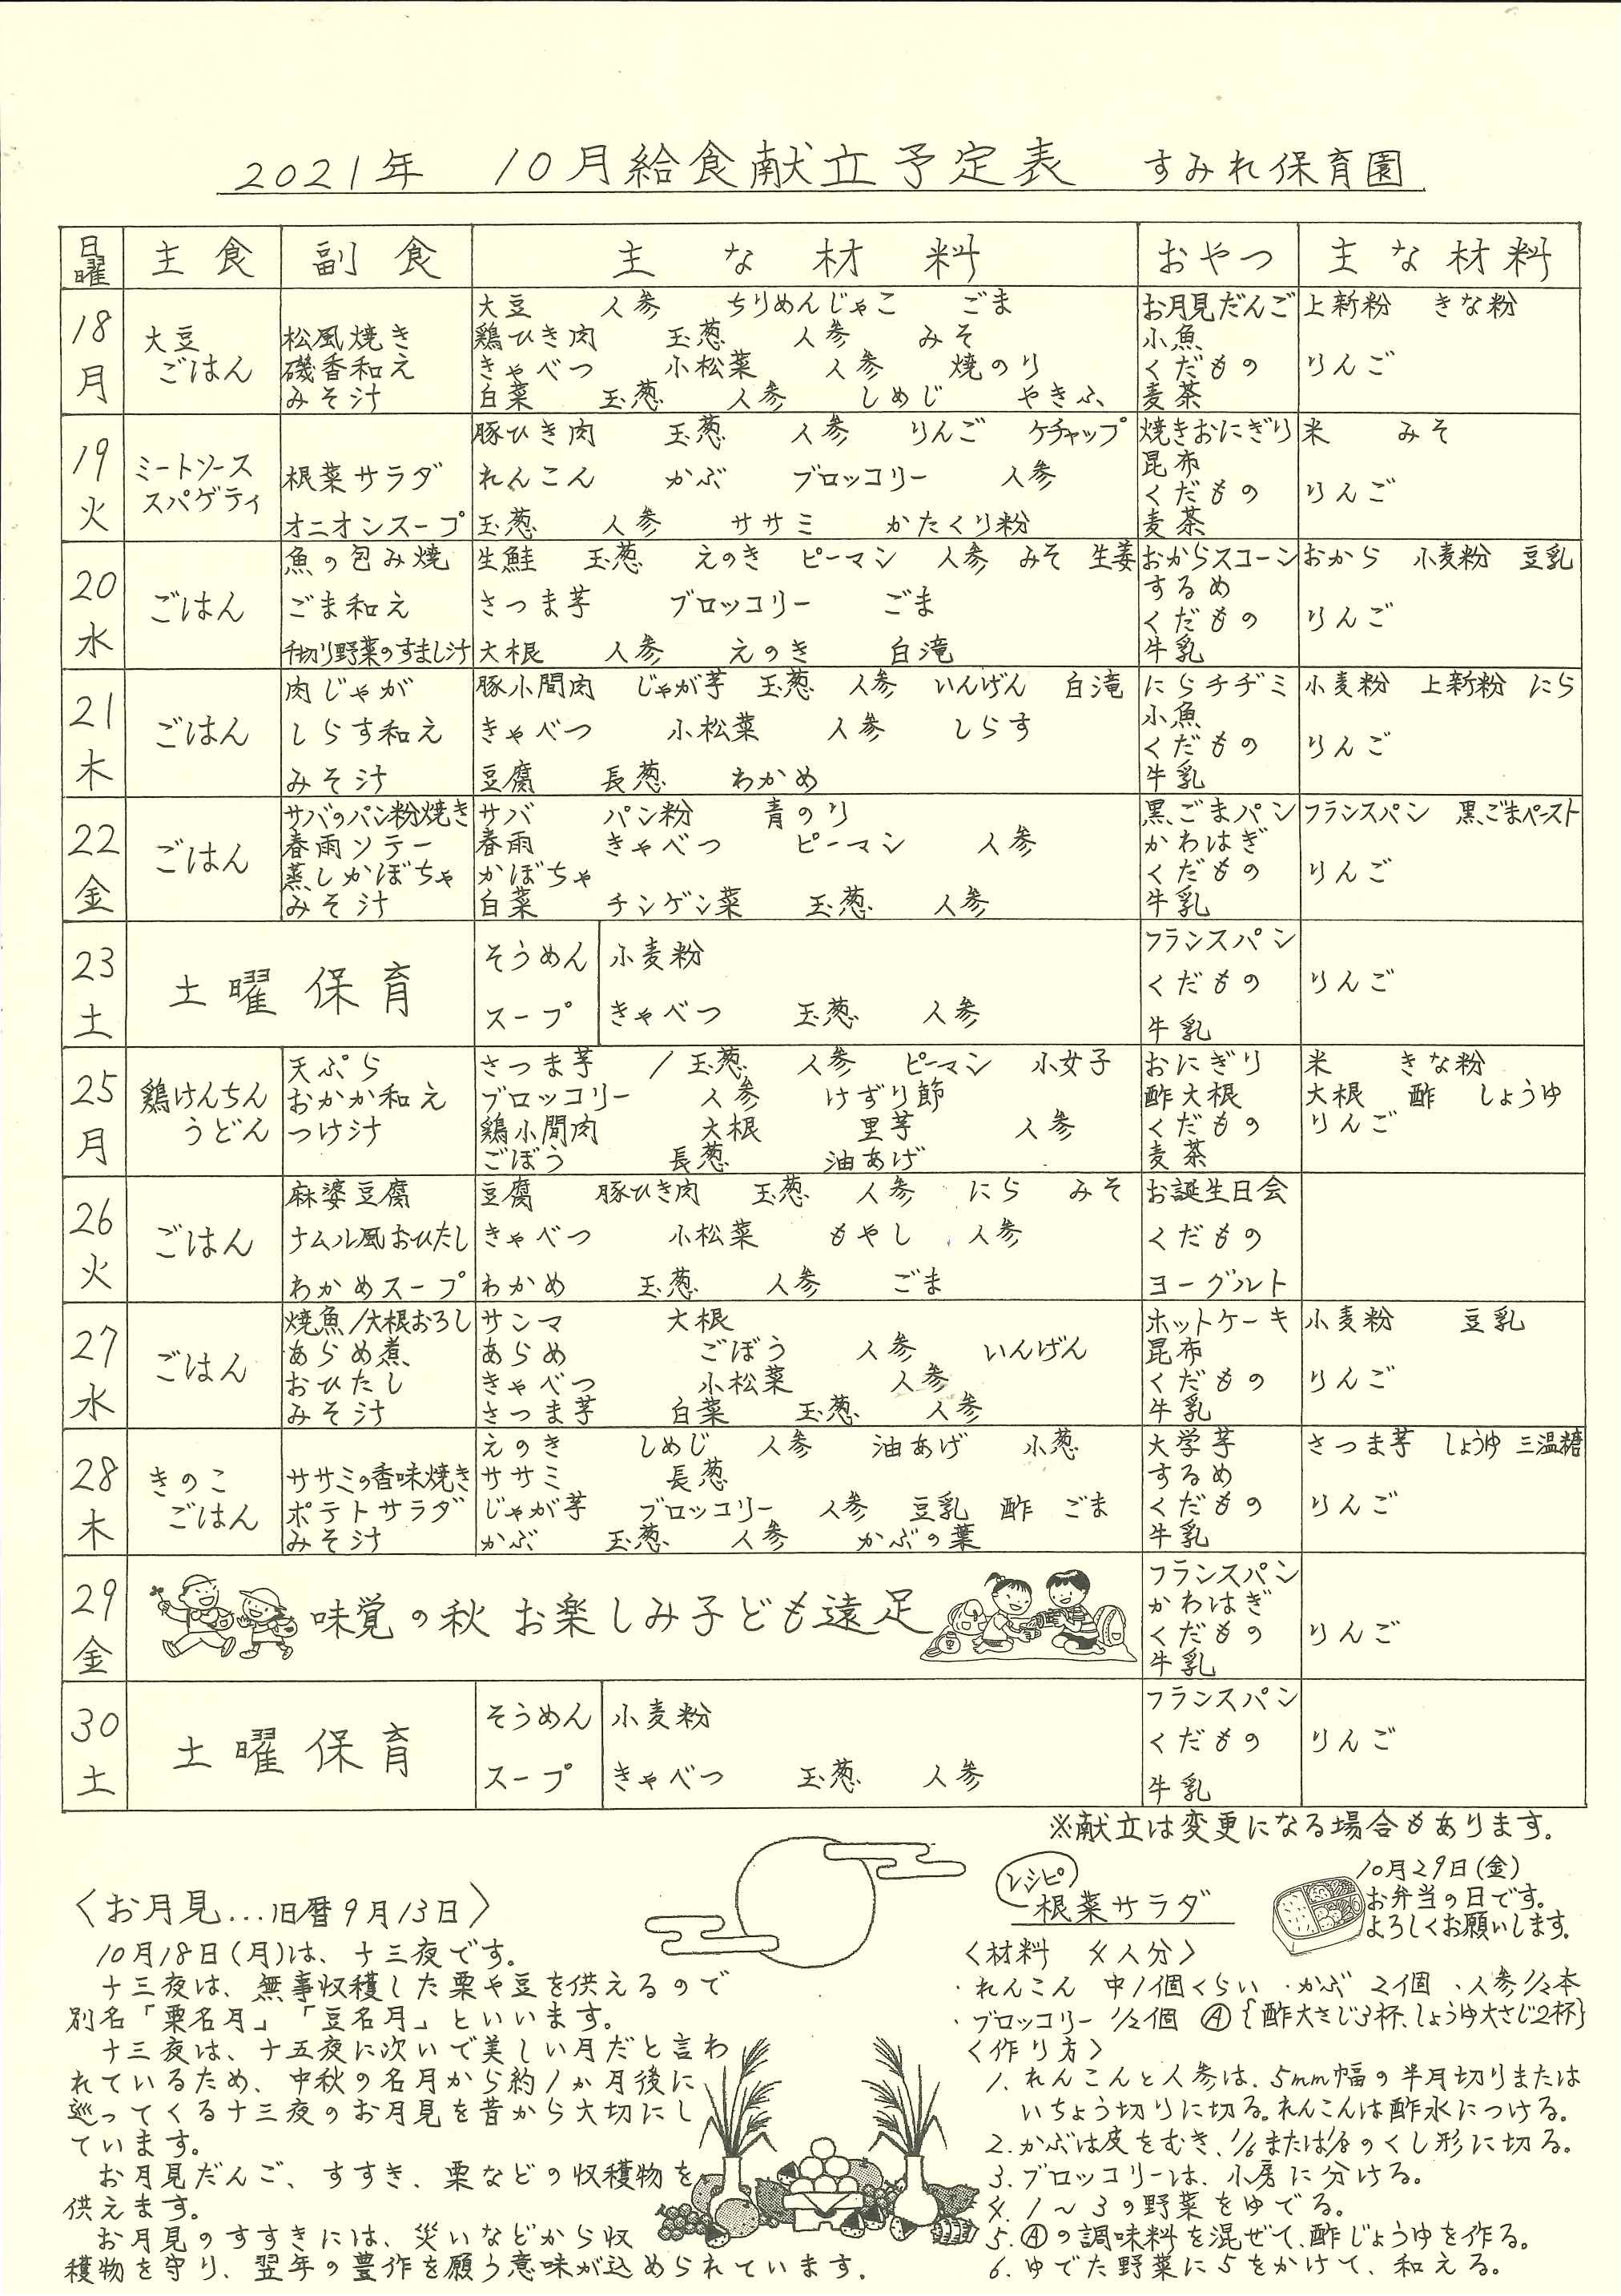 2021年　10月給食献立予定表　すみれ保育園
日曜　主食　副食　主な材料　おやつ　主な材料
18 月
大豆ごはん
大豆　人参　ちりめんじゃこ　ごま
松風焼き　鶏ひき肉　玉葱　人参　みそ
磯香和え　きゃべつ　小松菜　人参　焼のり
みそ汁　白菜　玉葱　人参　しめじ　やきふ
お月見だんご　上新粉　きな粉
小魚
くだもの　りんご
麦茶
19 火
ミートソース
スパゲティ
豚ひき肉　玉葱　人参　りんご　ケチャップ
根菜サラダ　れんこん　かぶ　ブロッコリー　人参
オニオンスープ　玉葱　人参　ササミ　かたくり粉
焼きおにぎり　米　みそ
昆布
くだもの　りんご
麦茶
20 水
ごはん
魚の包み焼　生鮭　玉葱　えのき　ピーマン　人参　みそ　生姜
ごま和え　さつま芋　ブロッコリー　ごま
千切り野菜のすまし汁　大根　人参　えのき　白滝
おからスコーン　おから　小麦粉　豆乳
するめ
くだもの　りんご
牛乳
21 木
ごはん
肉じゃが　豚小間肉　じゃが芋　玉葱　人参　いんげん　白滝
しらす和え　きゃべつ　小松菜　人参　しらす
みそ汁　豆腐　長葱　わかめ
にらチヂミ　小麦粉　上新粉　にら
小魚
くだもの　りんご
牛乳
22 金
ごはん
サバのパン粉焼き　サバ　パン粉　青のり
春雨ソテー　春雨　きゃべつ　ピーマン　人参
蒸しかぼちゃ　かぼちゃ
みそ汁　白菜　チンゲン菜　玉葱　人参
黒ごまパン　フランスパン　黒ごまペースト
かわはぎ
くだもの　りんご
牛乳
23 土
土曜保育
そうめん　小麦粉
スープ　きゃべつ　玉葱　人参
フランスパン
くだもの　りんご
牛乳
25 月
鶏けんちん
うどん
天ぷら　さつま芋　/　玉葱　人参　ピーマン　小女子
おかか和え　ブロッコリー　人参　けずり節
つけ汁　鶏小間肉　大根　里芋　人参
ごぼう　長葱　油あげ
おにぎり　米　きな粉
酢大根　大根　酢　しょうゆ
くだもの　りんご
麦茶
26 火
ごはん
麻婆豆腐　豆腐　豚ひき肉　玉葱　人参　にら　みそ
ナムル風おひたし　きゃべつ　小松菜　もやし　人参
わかめスープ　わかめ　玉葱　人参　ごま
お誕生日会
くだもの
ヨーグルト
27 水
ごはん
焼魚/大根おろし　サンマ　大根
あらめ煮　あらめ　ごぼう　人参　いんげん
おひたし　きゃべつ　小松菜　人参
みそ汁　さつま芋　白菜　玉葱　人参
ホットケーキ　小麦粉　豆乳
昆布
くだもの　りんご
牛乳
28 木
きのこ
ごはん
えのき　しめじ　人参　油あげ　小葱
ササミの香味焼き　ササミ　長葱
ポテトサラダ　じゃが芋　ブロッコリー　人参　豆乳　酢　ごま
みそ汁　かぶ　玉葱　人参　かぶの葉
大学芋　さつま芋　しょうゆ　三温糖
するめ
くだもの　りんご
牛乳
29 金
味覚の秋　お楽しみ子ども遠足
フランスパン
かわはぎ
くだもの　りんご
牛乳
30 土
土曜保育
そうめん　小麦粉
スープ　きゃべつ　玉葱　人参
フランスパン
くだもの　りんご
牛乳
※献立は変更になる場合もあります。
〈お月見…旧暦9月13日〉
10月18日(月)は、十三夜です。
十三夜は、無事収穫した栗や豆を供えるので
別名「栗名月」「豆名月」といいます。
十三夜は、十五夜に次いで美しい月だと言わ
れているため、中秋の名月から約1か月後に
巡ってくる十三夜のお月見を昔から大切にし
ています。
お月見だんご、すすき、栗などの収穫物を
供えます。
お月見のすすきには、災いなどから収
穫物を守り、翌年の豊作を願う意味が込められています。
レシピ
根菜サラダ
10月29日(金)
お弁当の日です。
よろしくお願いします。
〈材料　4人分〉
・れんこん　中1個くらい　・かぶ　2個　・人参1/2本
・ブロッコリー　1/2個　Ⓐ{酢大さじ3杯、しょうゆ大さじ2杯}
〈作り方〉
1. れんこんと人参は、5mm幅の半月切りまたは
いちょう切りに切る。れんこんは酢水につける。
2. かぶは皮をむき、1/6または1/8のくし形に切る。
3. ブロッコリーは、小房に分ける。
4. 1～3の野菜をゆでる。
5. Ⓐの調味料を混ぜて、酢じょうゆを作る。
6. ゆでた野菜に5をかけて、和える。